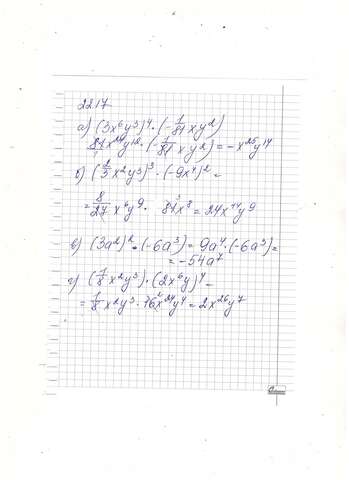 22.17
а) (3x⁶y³)⁴ · (-1/81 xy²)
81x²⁴y¹² · (-1/81 xy²) = -x²⁵y¹⁴
б) (2/3 x²y³)³ · (-9x⁴)² =
= 8/27 x⁶y⁹ · 81x⁸ = 24x¹⁴y⁹
в) (3a²)² · (-6a³) = 9a⁴ · (-6a³) =
= -54a⁷
г) (1/8 x²y³) · (2x⁶y)⁴ =
= 1/8 x²y³ · 16x²⁴y⁴ = 2x²⁶y⁷